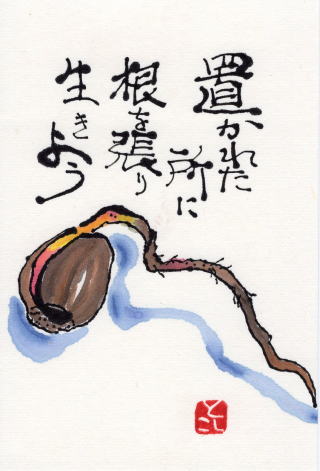 置かれた
所に
根を張り
生きよう
とこ